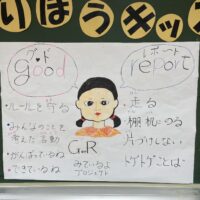 いほうキッズ
グッド
good
・ルールを守る
・みんなのことを
考えた言動
・がんばっているね
・できているね
レポート
report
・走る
・棚、机にのる
・片づけしない
・トゲトゲことば
G&R
みているよ
プロジェクト